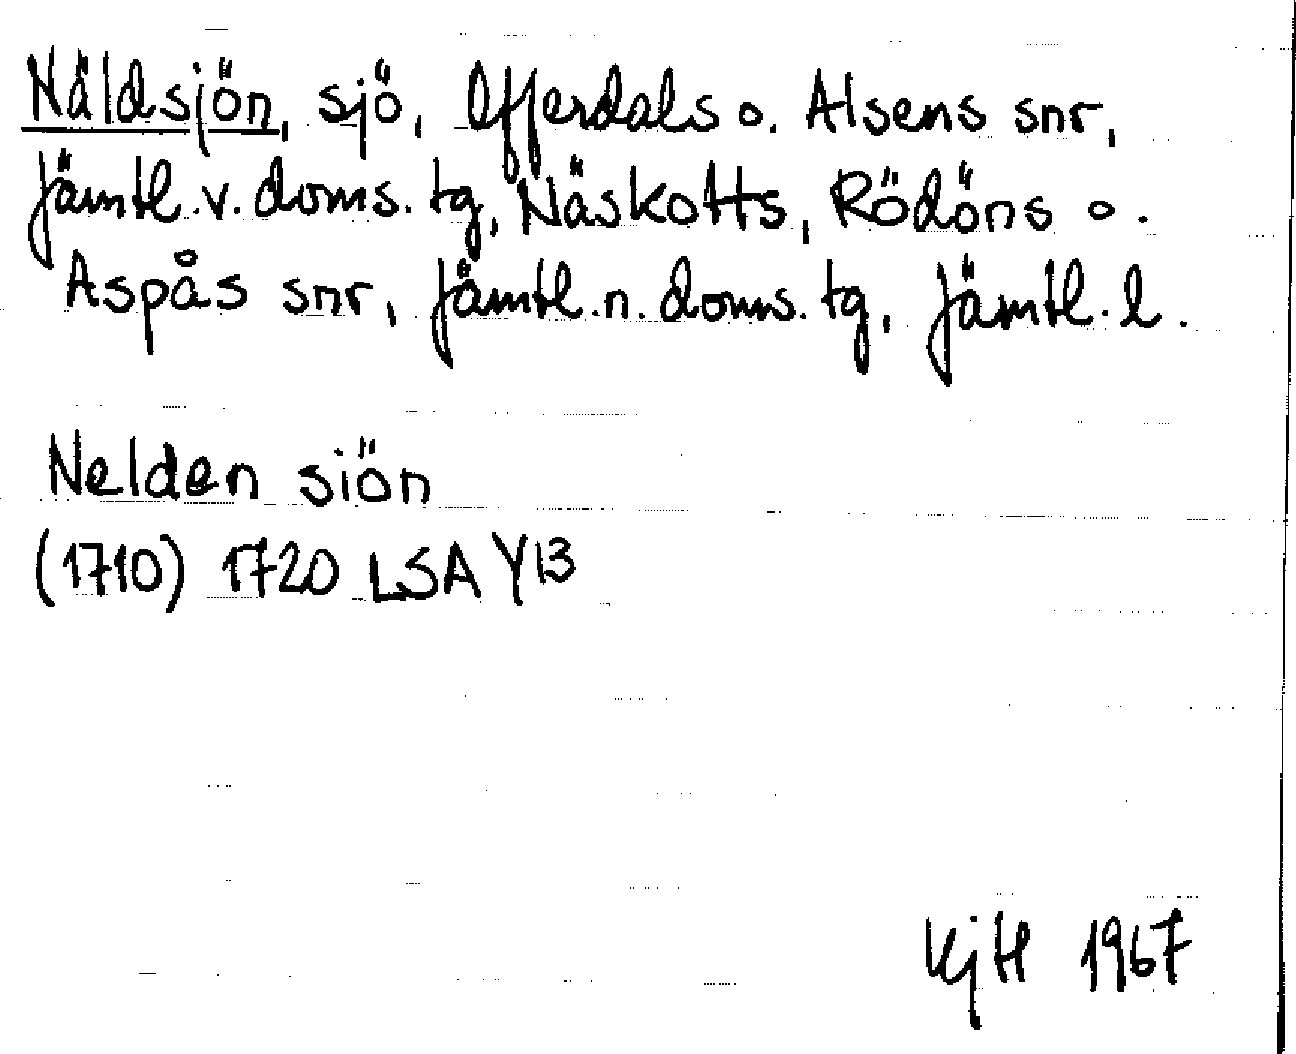 Näldsjön, sjö, Offerdals o. Alsens snr,
Jämtl.v.doms.tg, Näskotts, Rödöns o.
Aspås snr, Jämtl.n.doms.tg, Jämtl.l.
Nelden siön
(1710) 1720 LSA Y13
KjH 1967